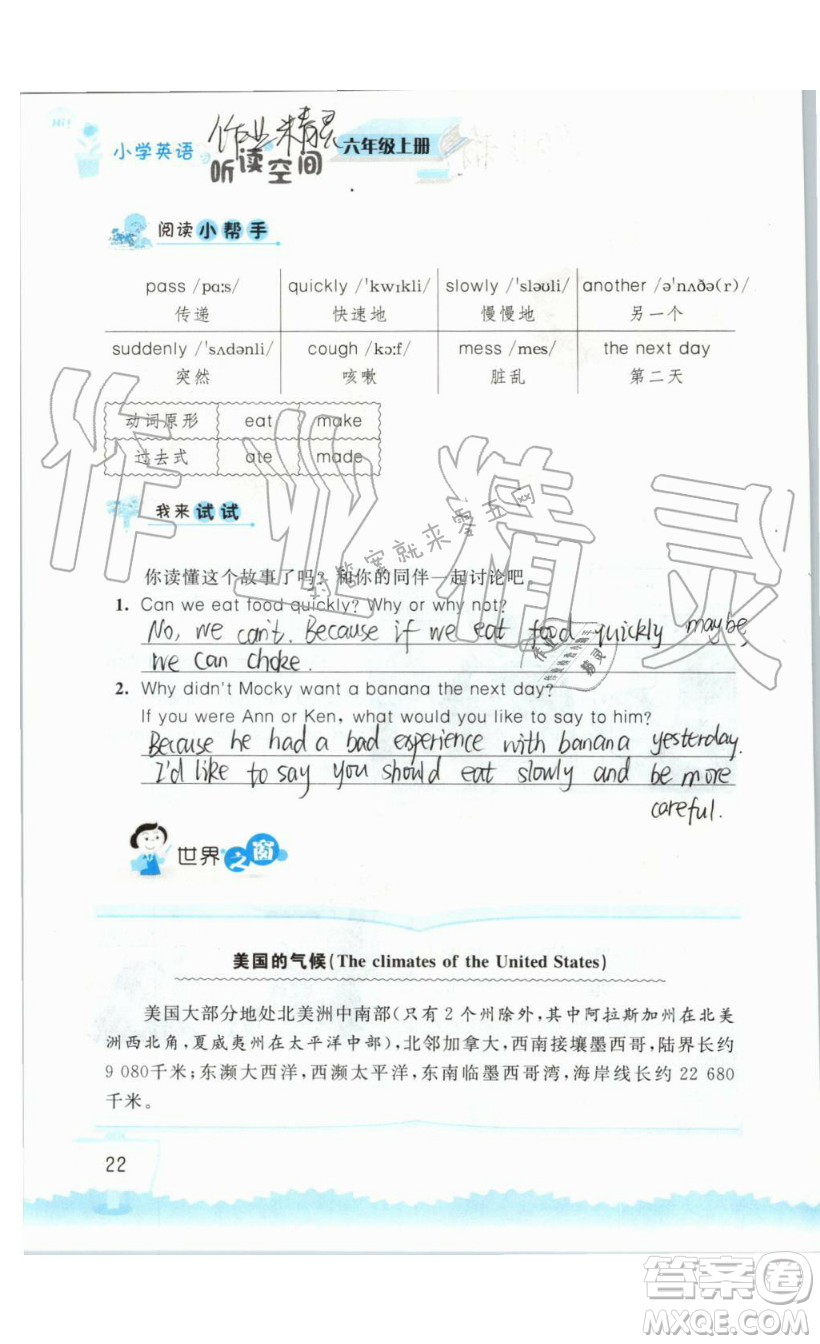 Hi!
小学英语
作业精灵
听读空间
六年级上册
阅读小帮手
pass /pɑːs/ quickly /ˈkwɪkli/ slowly /ˈsləʊli/ another /əˈnʌðə(r)/
传递 快速地 慢慢地 另一个
suddenly /ˈsʌdənli/ cough /kɔːf/ mess /mes/ the next day
突然 咳嗽 脏乱 第二天
动词原形 eat make
过去式 ate made
我来试试
你读懂这个故事了吗？和你的同伴一起讨论吧。
1. Can we eat food quickly? Why or why not?
No, we can't. Because if we eat food quickly maybe
we can choke.
2. Why didn't Mocky want a banana the next day?
If you were Ann or Ken, what would you like to say to him?
Because he had a bad experience with banana yesterday.
I'd like to say you should eat slowly and be more
careful.
世界之窗
美国的气候(The climates of the United States)
美国大部分地处北美洲中南部(只有 2 个州除外,其中阿拉斯加州在北美
洲西北角,夏威夷州在太平洋中部),北邻加拿大,西南接壤墨西哥,陆界长约
9 080千米;东濒大西洋,西濒太平洋,东南临墨西哥湾,海岸线长约 22 680
千米。
22
作业精灵
对答案就来零五网
作业
精灵
答案卷
MXQE.COM